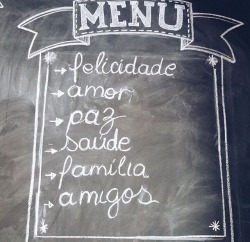 MENU
felicidade
amor
paz
saúde
família
amigos